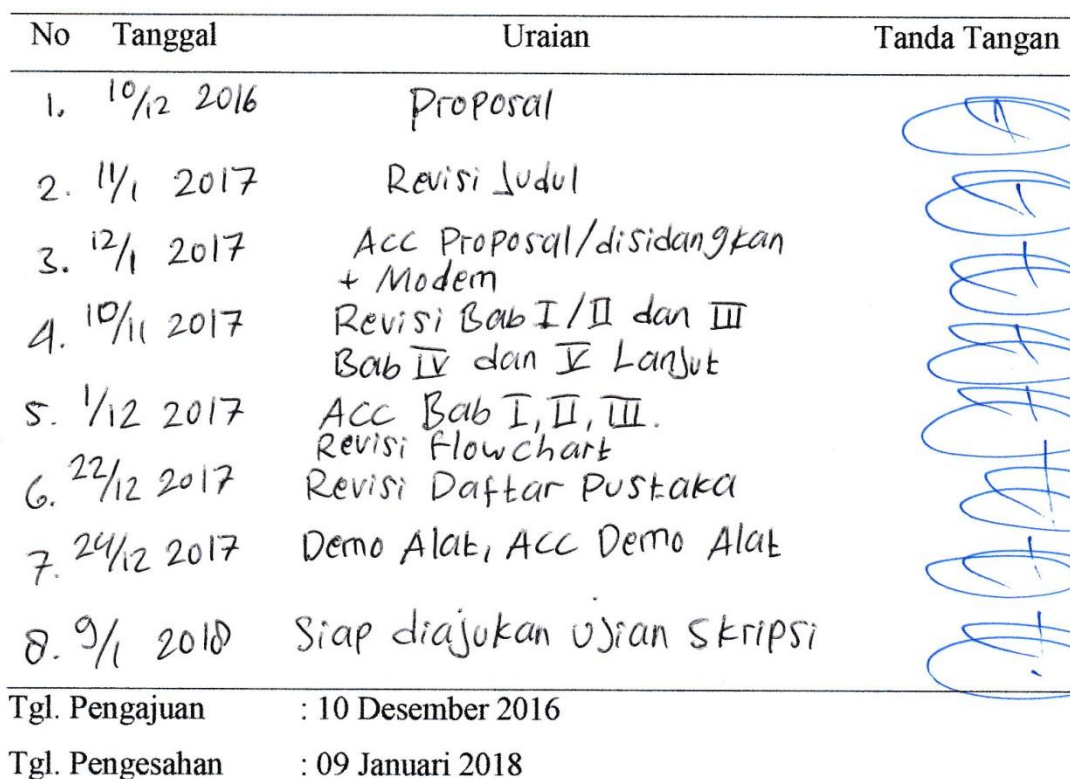 No Tanggal Uraian Tanda Tangan
1. 10/12 2016 Proposal
2. 11/1 2017 Revisi Judul
3. 12/1 2017 Acc Proposal/disidangkan
+ Modem
4. 10/11 2017 Revisi Bab I/II dan III
Bab IV dan V Lanjut
5. 1/12 2017 Acc Bab I, II, III.
Revisi Flowchart
6. 22/12 2017 Revisi Daftar Pustaka
7. 24/12 2017 Demo Alat, Acc Demo Alat
8. 9/1 2018 Siap diajukan Ujian Skripsi
Tgl. Pengajuan : 10 Desember 2016
Tgl. Pengesahan : 09 Januari 2018